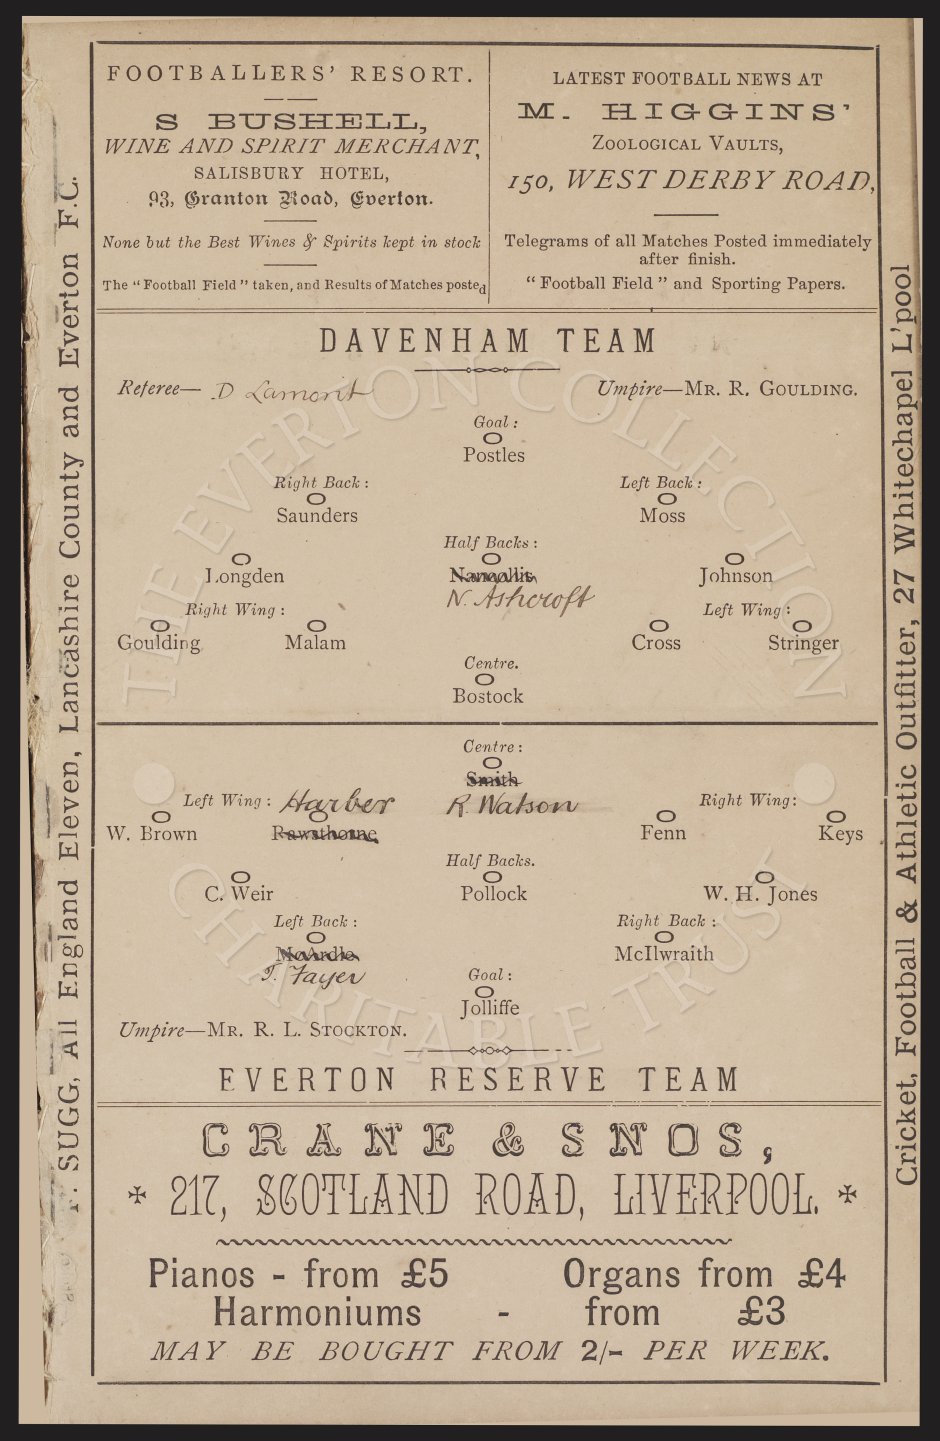 FOOTBALLERS' RESORT.
S BUSHELL,
WINE AND SPIRIT MERCHANT,
SALISBURY HOTEL,
93, Granton Road, Everton.
None but the Best Wines & Spirits kept in stock
The "Football Field" taken, and Results of Matches posted
LATEST FOOTBALL NEWS AT
M. HIGGINS'
ZOOLOGICAL VAULTS,
150, WEST DERBY ROAD,
Telegrams of all Matches Posted immediately
after finish.
"Football Field" and Sporting Papers.
DAVENHAM TEAM
Referee— D Lamont Umpire—MR. R. GOULDING.
Goal:
Postles
Right Back: Left Back:
Saunders Moss
Half Backs:
Longden Johnson
N. Ashcroft
Right Wing: Left Wing:
Goulding Malam Cross Stringer
Centre.
Bostock
Centre:
Smith
Left Wing: Harber R. Watson Right Wing:
W. Brown Rawsthorne Fenn Keys
Half Backs.
C. Weir Pollock W. H. Jones
Left Back: Right Back:
McArdle McIlwraith
T. Fayer Goal:
Jolliffe
Umpire—MR. R. L. STOCKTON.
EVERTON RESERVE TEAM
CRANE & SNOS,
217, SCOTLAND ROAD, LIVERPOOL.
Pianos - from £5 Organs from £4
Harmoniums - from £3
MAY BE BOUGHT FROM 2/- PER WEEK.
SUGG, All England Eleven, Lancashire County and Everton F.C.
Cricket, Football & Athletic Outfitter, 27 Whitechapel L'pool
THE EVERTON COLLECTION
CHARITABLE TRUST